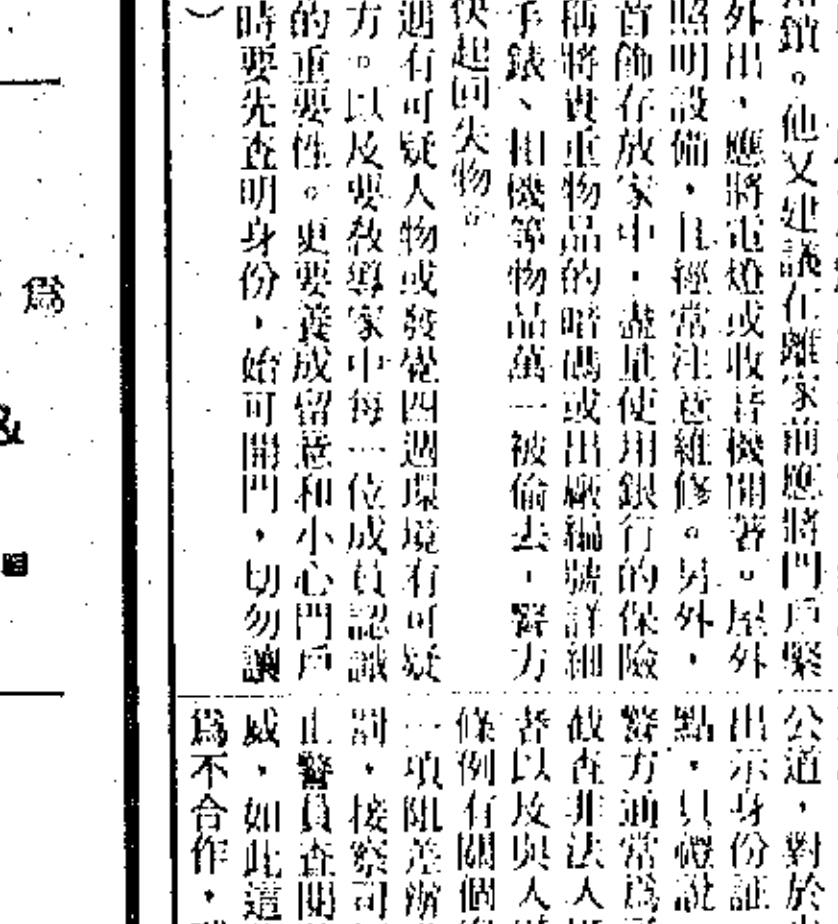 鎖。他又建議在離家前應將門戶緊
外出,應將電燈或收音機開著。屋外
照明設備,且經常注意維修。另外,
首飾存放家中,盡量使用銀行的保險
稱將貴重物品的暗碼或出廠編號詳細
手錶、相機等物品萬一被偷去,警方
快起回失物。
遇有可疑人物或發覺四週環境有可疑
方。以及要敎導家中每一位成員認識
的重要性。更要養成留意和小心門戶
時要先查明身份,始可開門,切勿讓
)
公道,對於
出示身份証
點,具體說
警方通常爲
截查非法人
者以及與人
條例有關個
一項阻差辦
罰,接察司
止警員查問
威,如此這
爲不合作,
爲
&